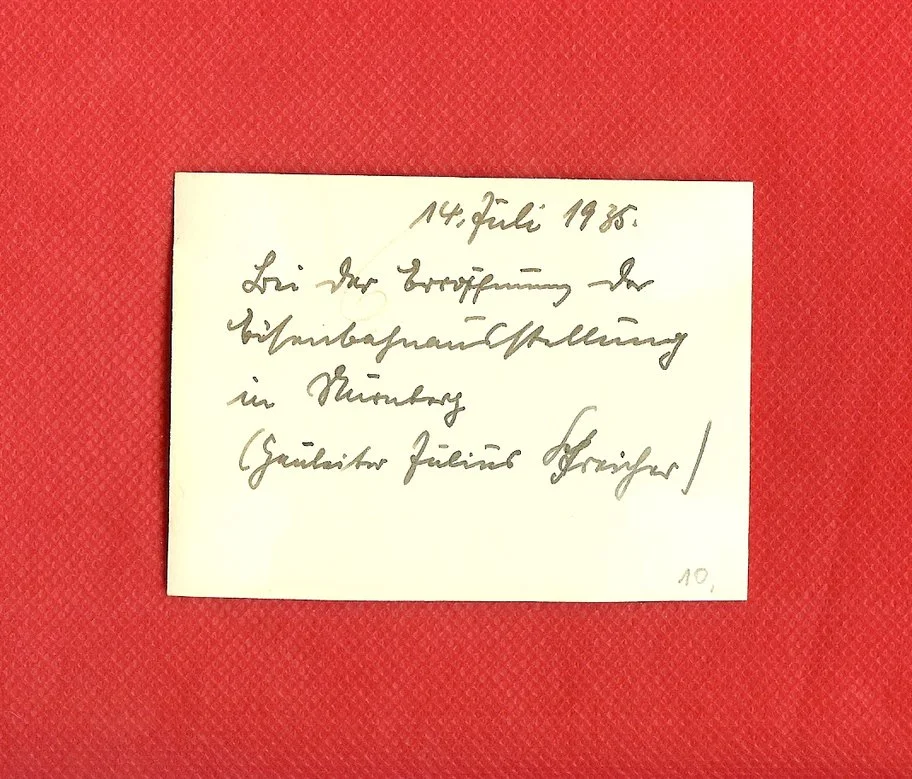 14. Juli 1935.
Bei der Erröffnung der
Eisenbahnausstellung
in Nürnberg
(Gauleiter Julius Streicher)
10,